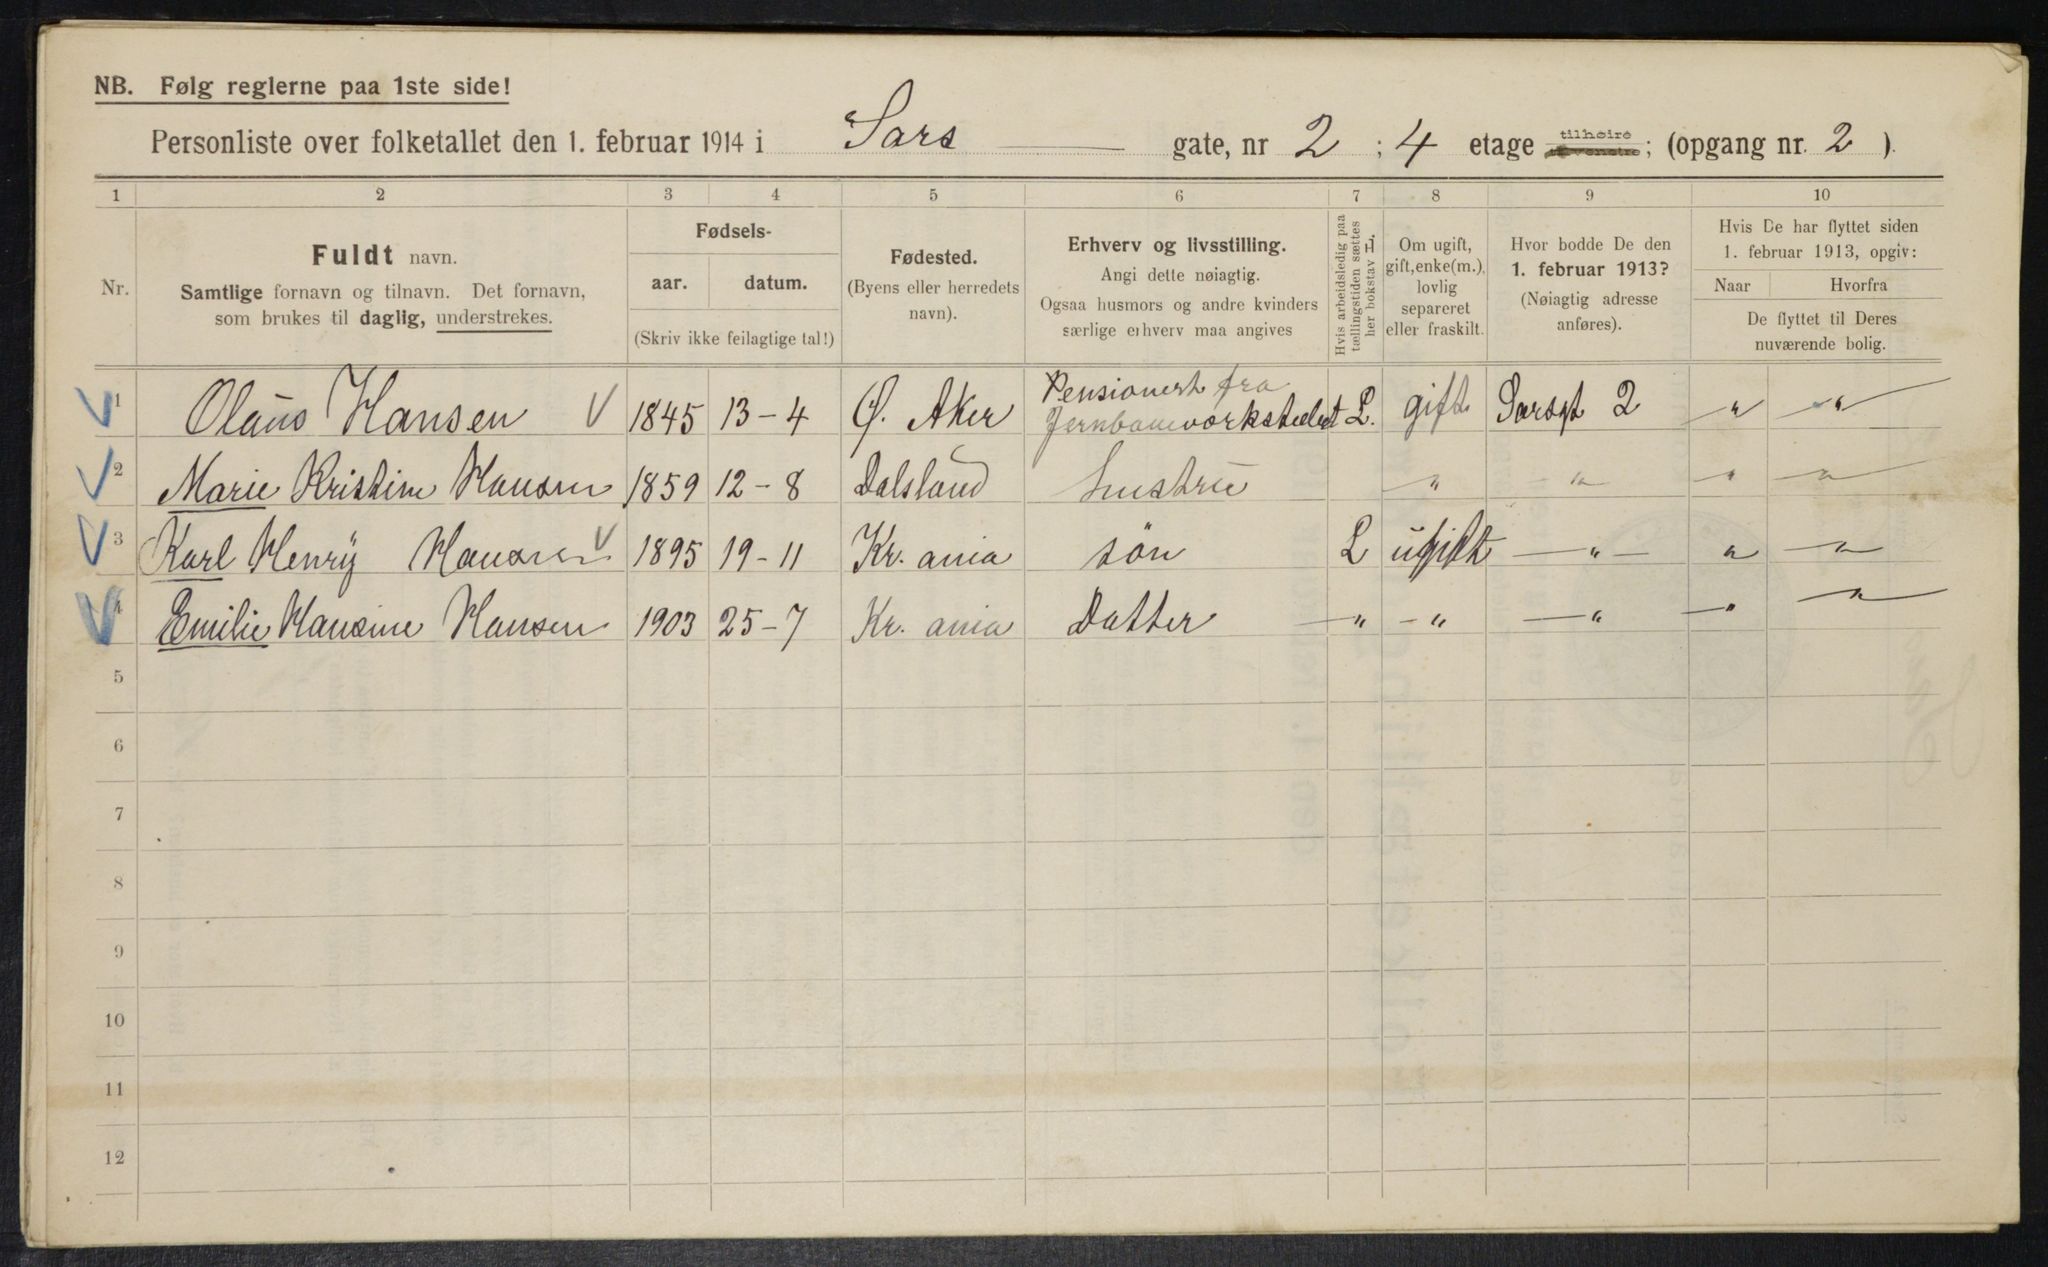 NB. Følg reglerne paa 1ste side!
Personliste over folketallet den 1. februar 1914 i Sars gate, nr 2 ; 4 etage tilhøire ; (opgang nr. 2 ).
1 2 3 4 5 6 7 8 9 10
Nr.
Fuldt navn.
Samtlige fornavn og tilnavn. Det fornavn,
som brukes til daglig, understrekes.
Fødsels-
aar. datum.
(Skriv ikke feilagtige tal!)
Fødested.
(Byens eller herredets
navn).
Erhverv og livsstilling.
Angi dette nøiagtig.
Ogsaa husmors og andre kvinders
særlige erhverv maa angives
Hvis arbeidsledig paa
tællingstiden sættes
her bokstav L.
Om ugift,
gift, enke(m.),
lovlig
separeret
eller fraskilt.
Hvor bodde De den
1. februar 1913?
(Nøiagtig adresse
anføres).
Hvis De har flyttet siden
1. februar 1913, opgiv:
Naar Hvorfra
De flyttet til Deres
nuværende bolig.
1 Olaus Hansen V 1845 13-4 Ø. Aker Pensionert fra Jernbaneværkstedet L. gift Sarsgt 2 " "
2 Marie Kristine Hansen 1859 12-8 Dalsland hustru " " " "
3 Karl Henry Hansen V 1895 19-11 Kr. ania sön L ugift " " "
4 Emilie Hansine Hansen 1903 25-7 Kr. ania Datter " " " " "
5
6
7
8
9
10
11
12